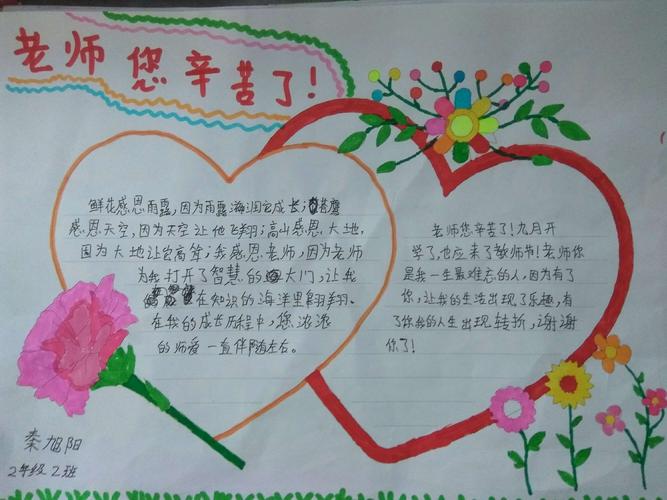 老师您辛苦了！
鲜花感恩雨露，因为雨露滋润它成长；苍鹰
感恩天空，因为天空让他飞翔；高山感恩大地，
因为大地让它高耸；我感恩老师，因为老师
为我打开了智慧的大门，让我
在知识的海洋里翱翔。
在我的成长历程中，您浓浓
的师爱一直伴随左右。
老师您辛苦了！九月开
学了，也应来了教师节！老师你
是我一生最难忘的人，因为有了
你，让我的生活出现了乐趣，有
了你我的人生出现转折，谢谢
你了！
秦旭阳
2年级2班